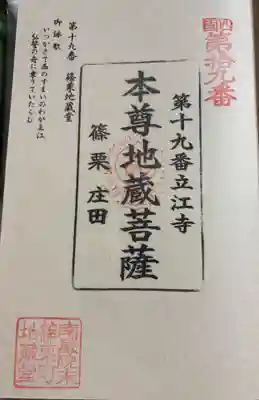 四国
第拾九番
第十九番立江寺
本尊地蔵菩薩
篠栗 庄田
第十九番 篠栗地蔵堂
御詠歌
いつかさて西のすまいのわが立江
弘誓の舟に乗りていたらむ
地蔵堂